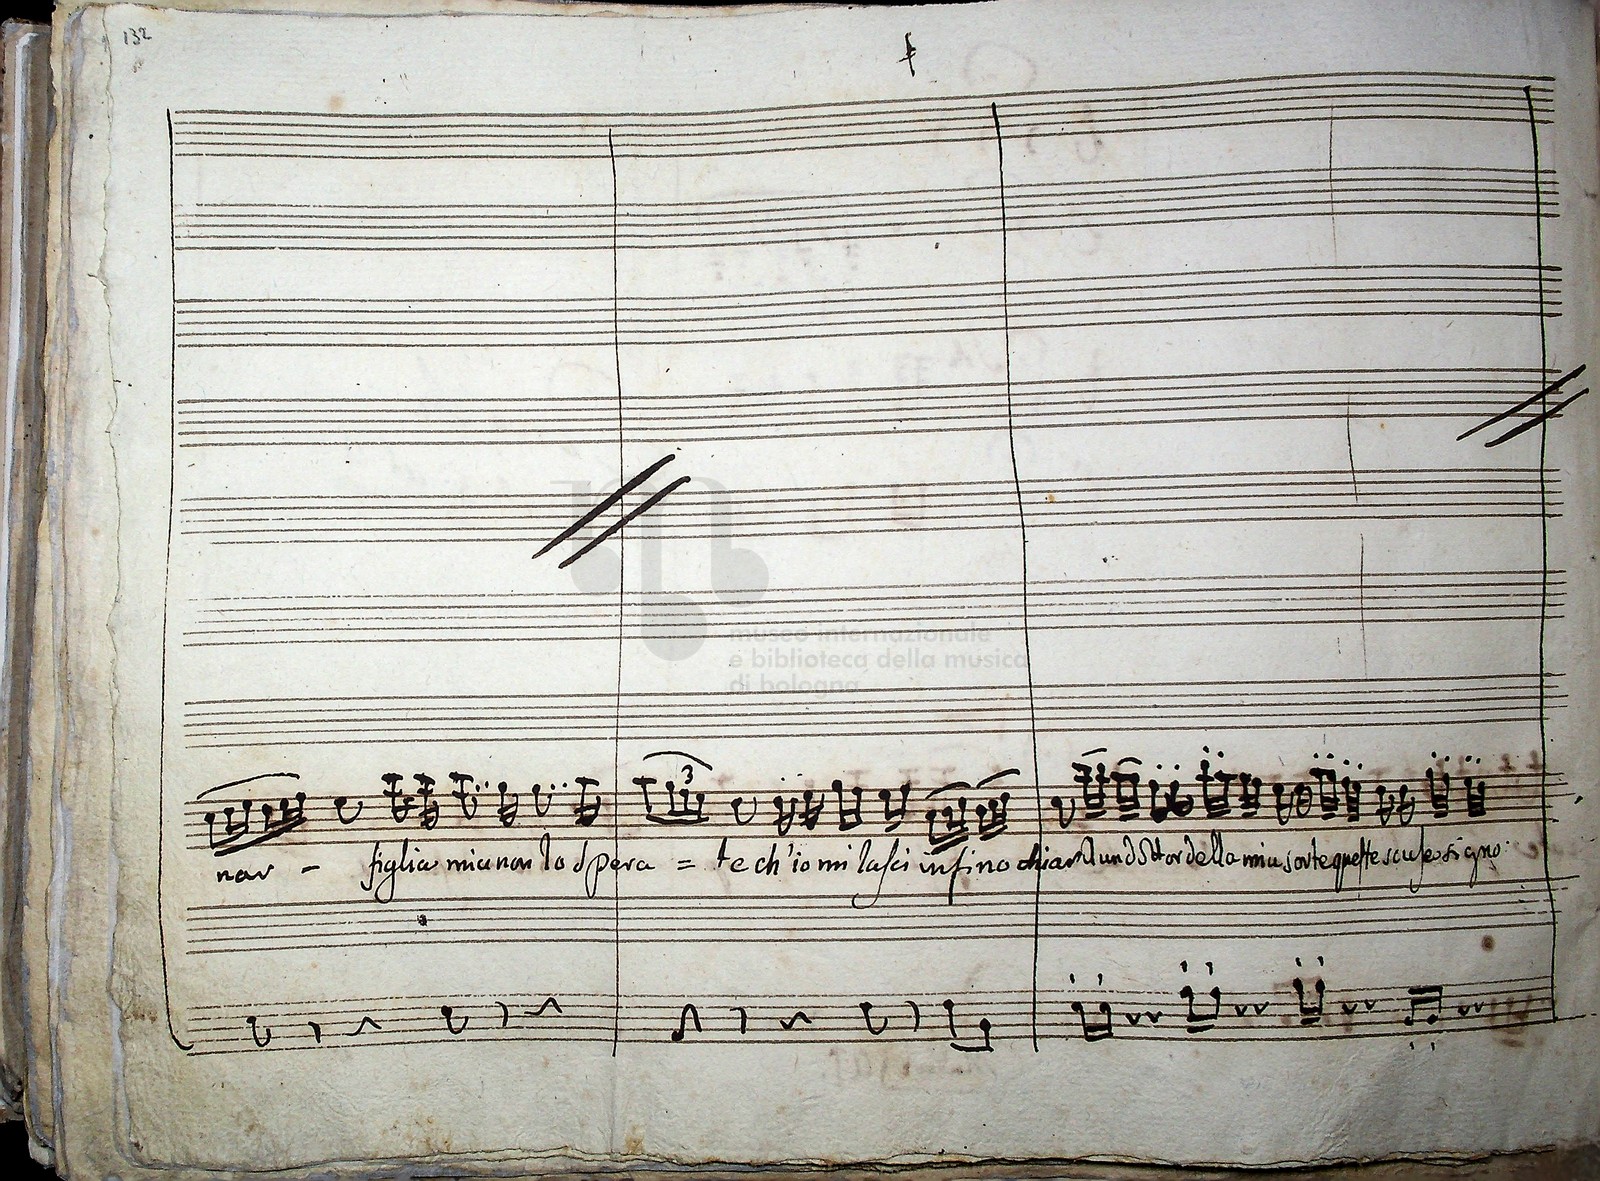 132
3
museo internazionale
e biblioteca della musica
di bologna
nar - figlia mia non lo spera = te ch'io mi lasci infinochiar un dottor della mia sorte queste scuse signo